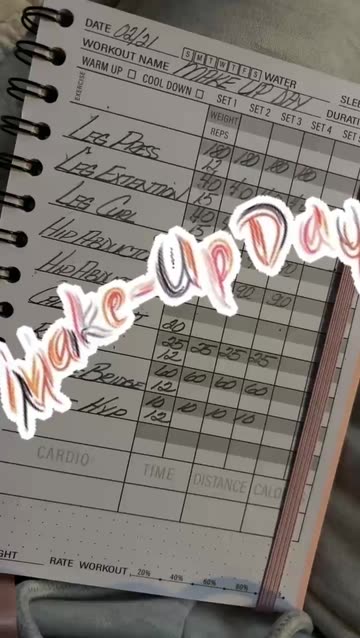 DATE 02/21
S M T W T F S WATER
WORKOUT NAME MAKE UP DAY SLE
WARM UP COOL DOWN SET 1 SET 2 SET 3 SET 4 SET 5 DURATI
EXERCISE
WEIGHT
REPS
LEG PRESS 180 180 180 180
12
LEG EXTENTION 40 40
15
LEG CURL 40
15
HIP ABDUCTO
HIP
90
Make-Up Day
80
25 25 25 25
12
BRIDGE 60 60 60 60
12
HYP 10 10 10 10
12
CARDIO TIME DISTANCE CALO
GHT RATE WORKOUT 20% 40% 60% 80%